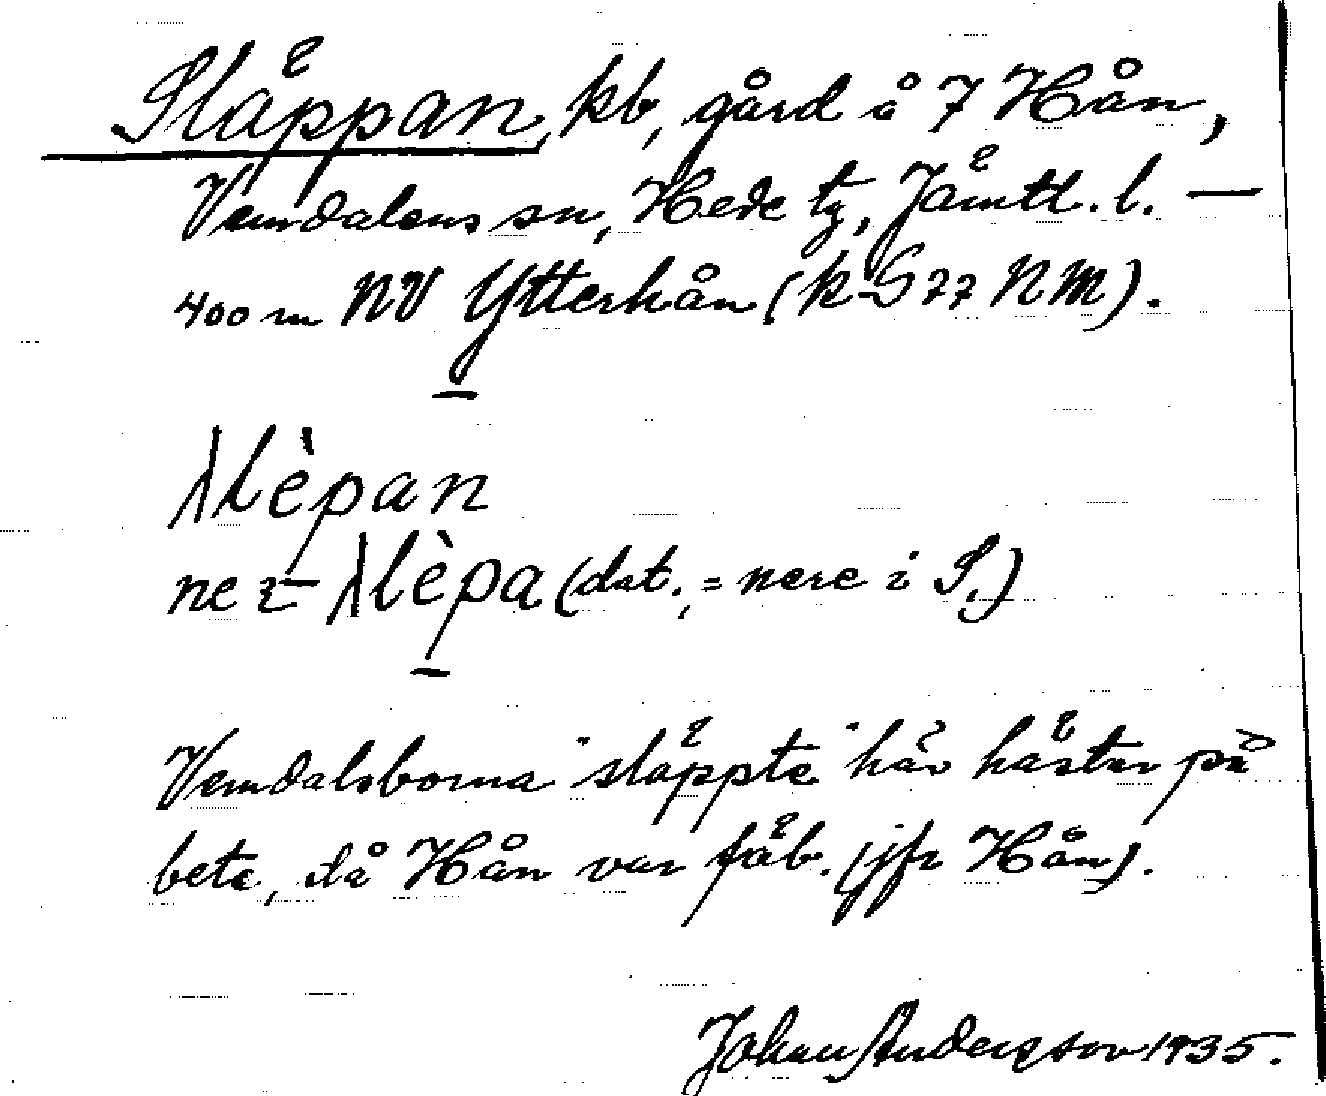 Släppan, kb, gård å 7 Hån,
Vemdalens sn, Hede tg, Jämtl. l. —
400 m NV Ytterhån (k S 77 NM).
slèpan
ne i slèpa (dat., = nere i S.)
Vemdalsborna "släppte" här hästar på
bete, då Hån var fäb. (jfr Hån).
Johan Andersson 1935.